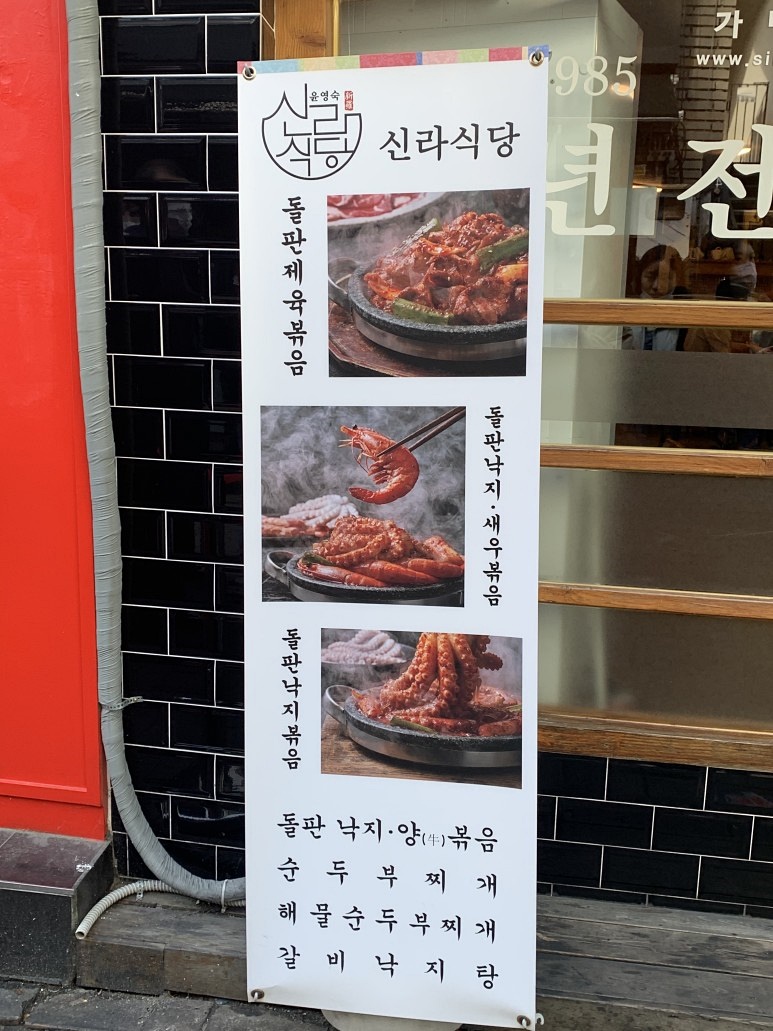 윤영숙
신라
식당
신라식당
돌판제육볶음
돌판낙지·새우볶음
돌판낙지볶음
돌판 낙지·양(牛)볶음
순두부찌개
해물순두부찌개
갈비낙지탕
985
년 전
가
www.si